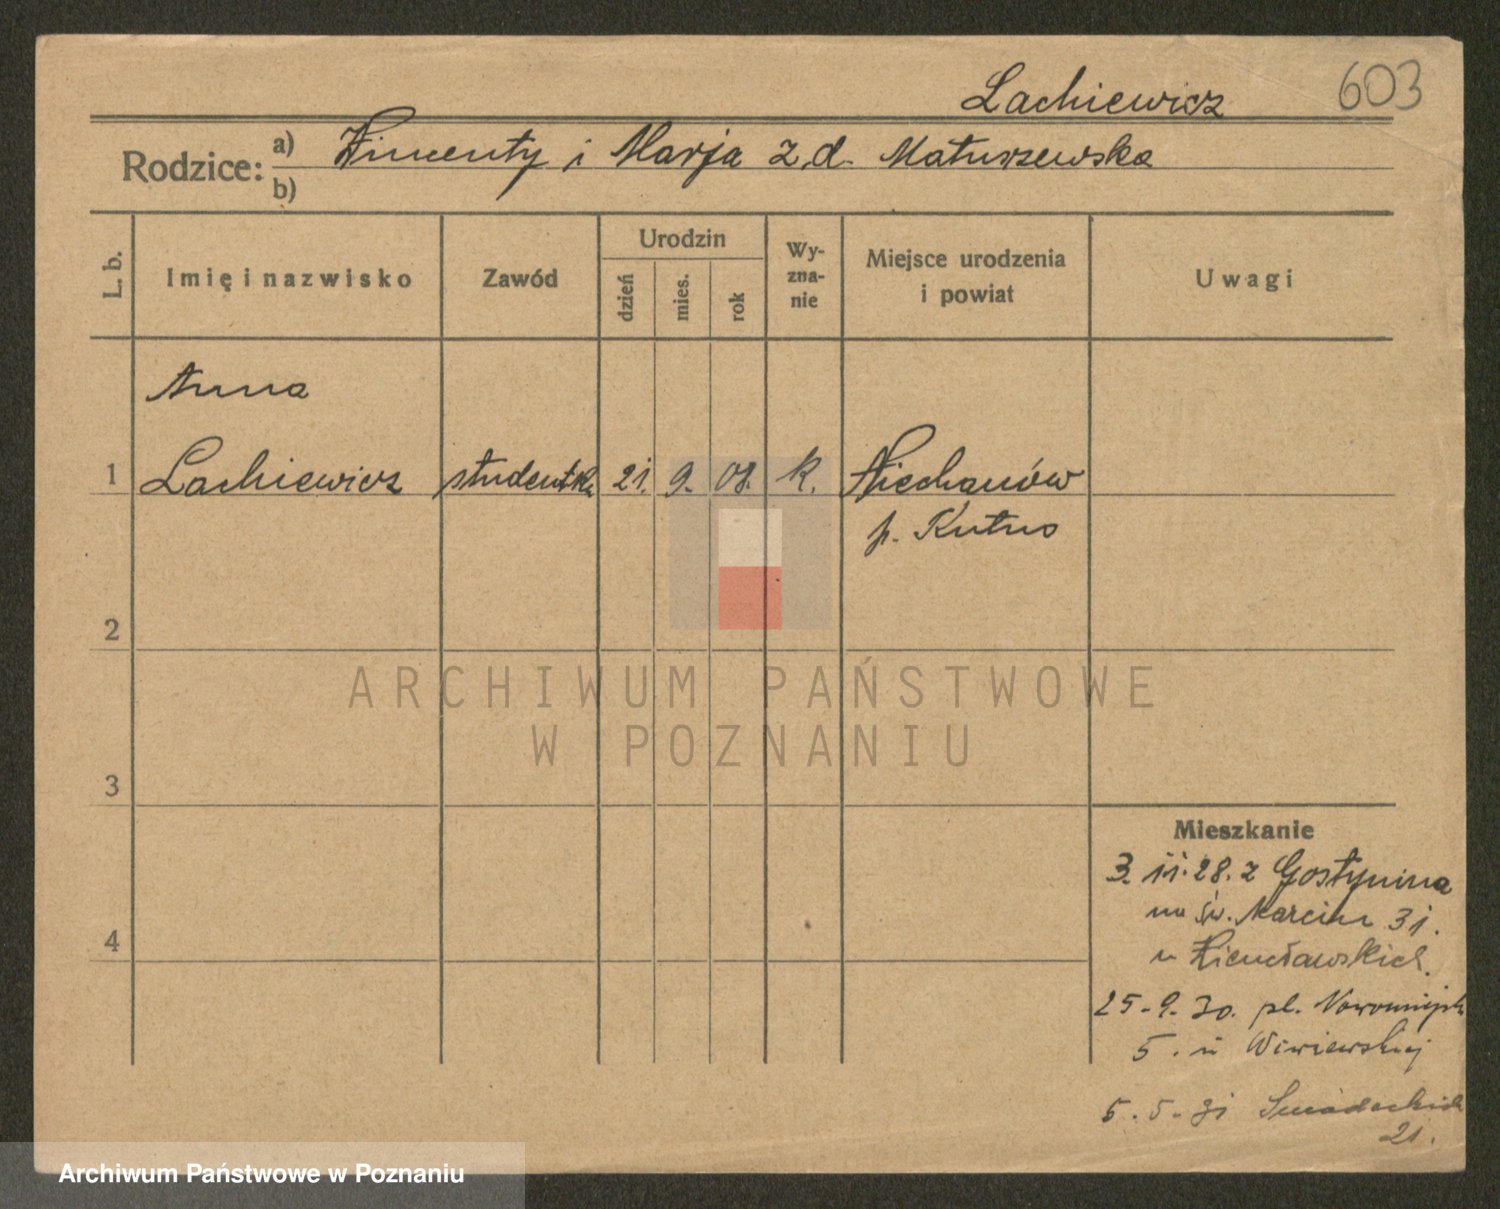 603
Lachiewicz
Rodzice: a) Wincenty i Marja z d. Maturzewska
b)
L. b.
Imię i nazwisko
Zawód
Urodzin
dzień
mies.
rok
Wy-
zna-
nie
Miejsce urodzenia
i powiat
Uwagi
Anna
1 Lachiewicz studentka 21. 9. 08. k. Niechanów
p. Kutno
2
ARCHIWUM PAŃSTWOWE
W POZNANIU
3
Mieszkanie
3. 11. 28. z Gostynina
na św. Marcin 31.
4
u
25. 9. 30. pl. Nowomiejski
5. u Wiwiewskiej
5. 5. 31 Śniadeckich
21.
Archiwum Państwowe w Poznaniu